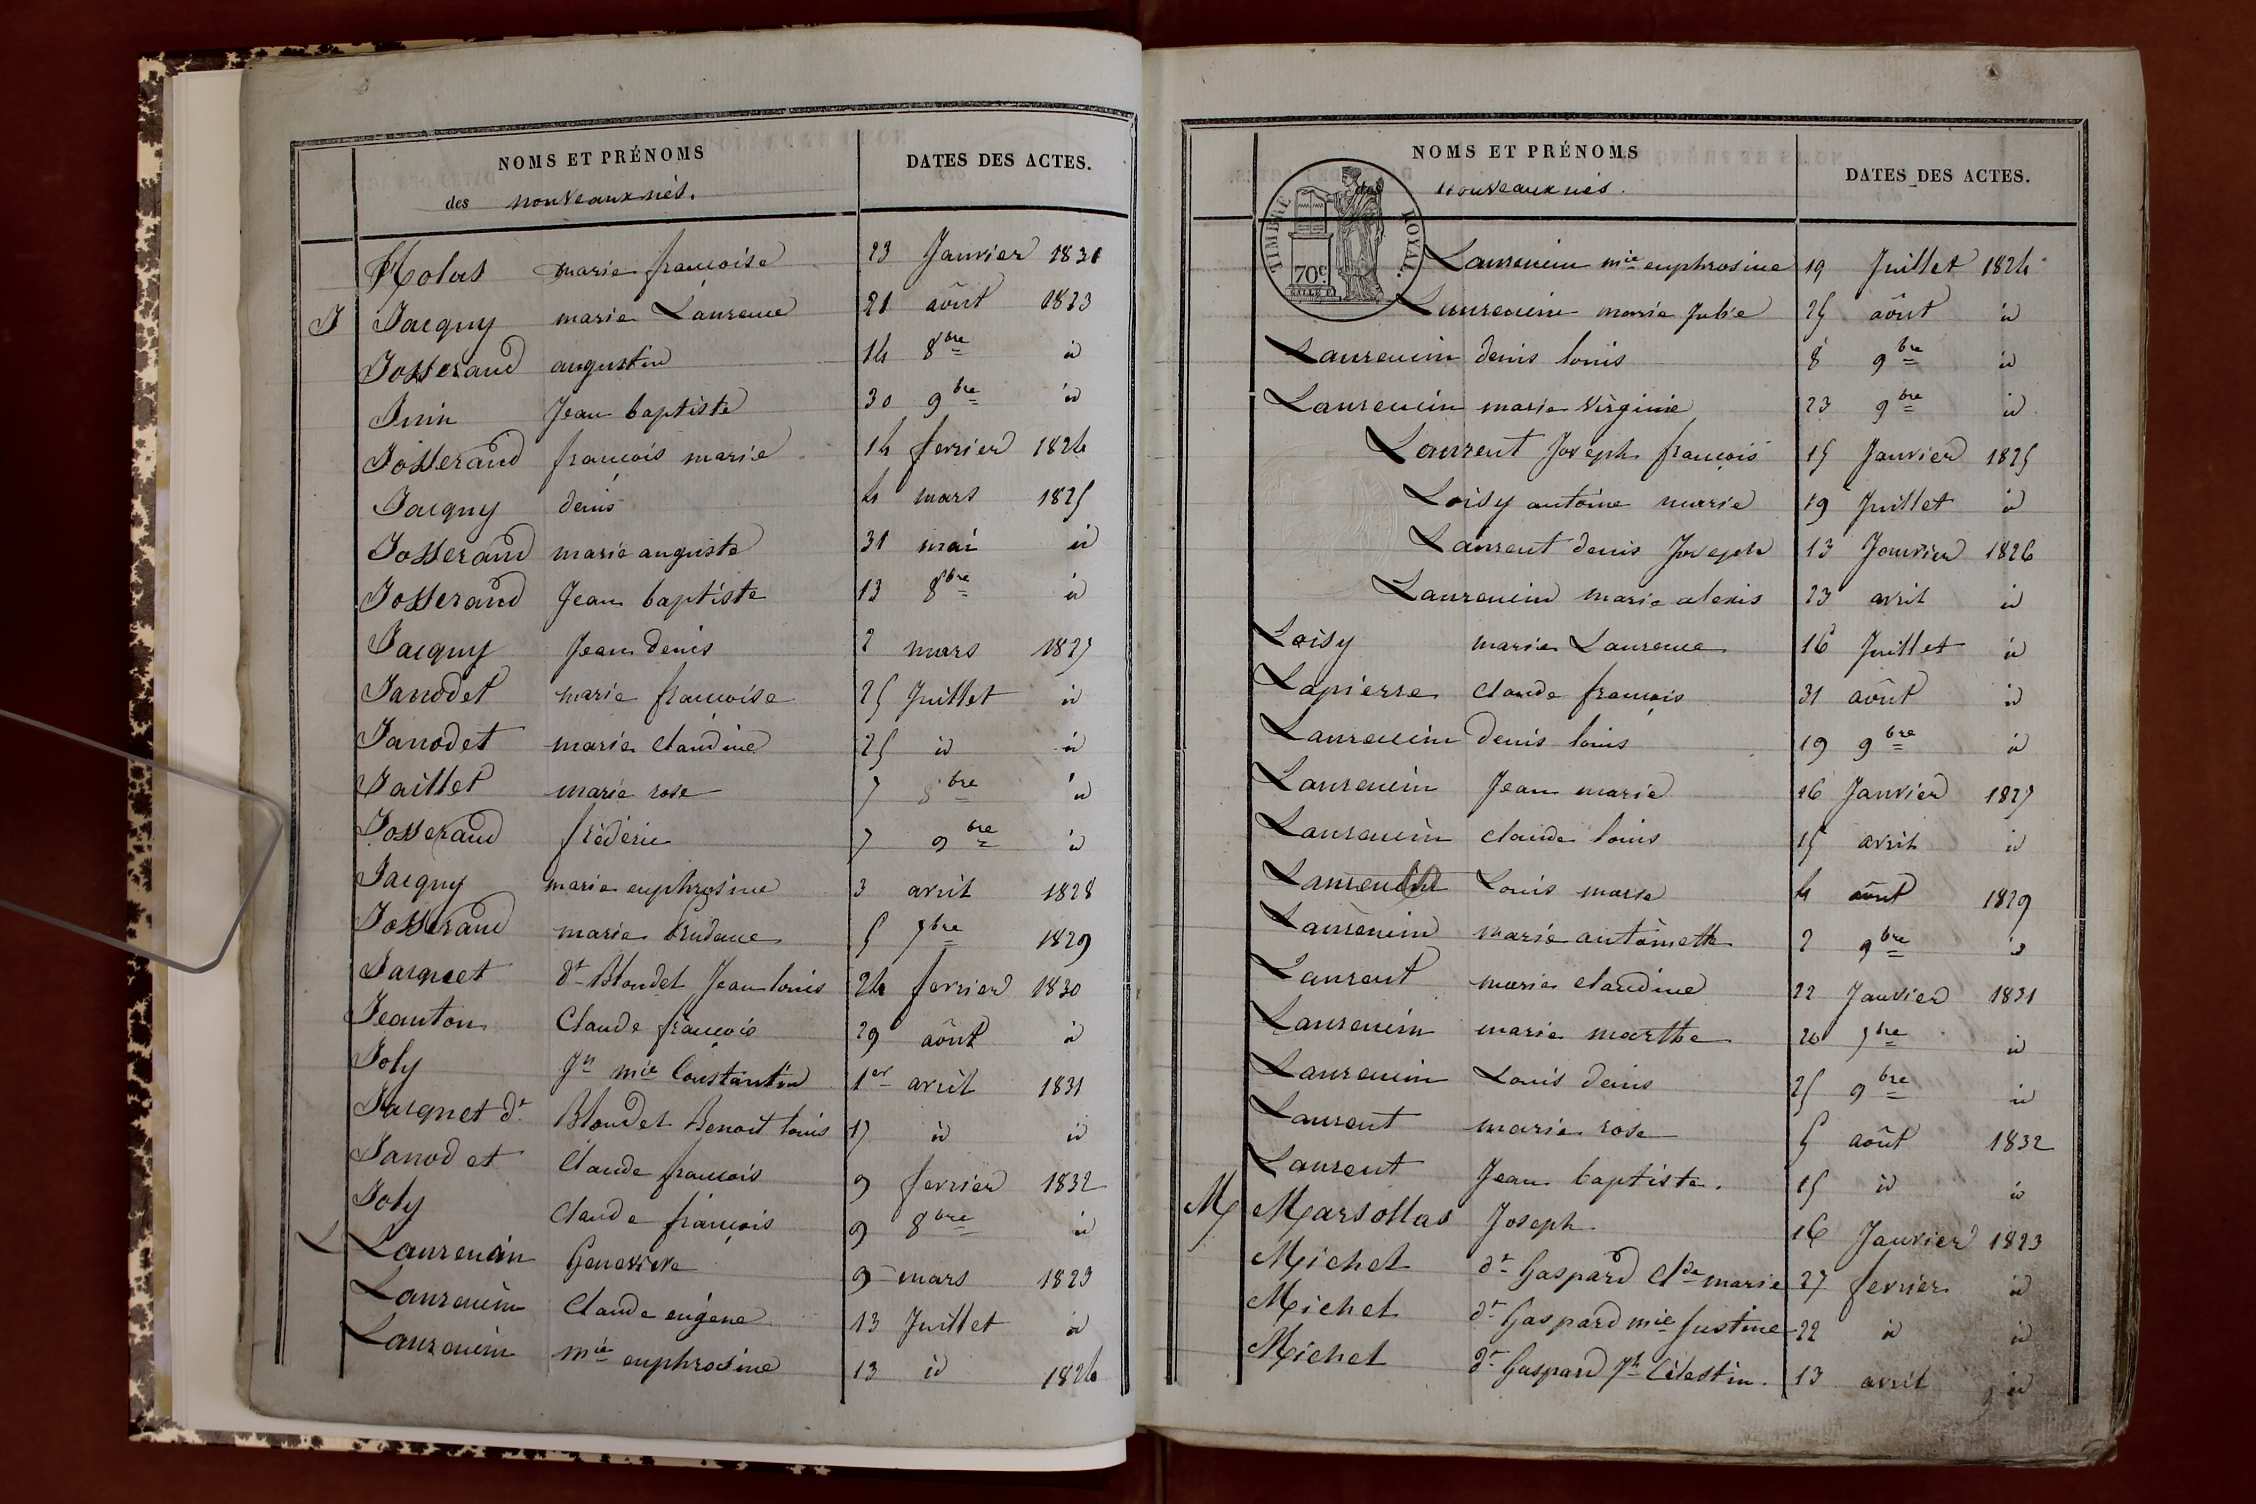 NOMS ET PRÉNOMS
DATES DES ACTES.
des nouveaux nés.
Holas marie françoise 23 Janvier 1831
J Jacquy marie Laurence 21 août 1823
Josserand augustin 14 8bre id
Juin Jean baptiste 30 9bre id
Josserand françois marie 14 fevrier 1824
Jacquy denis 4 mars 1825
Josserand marie auguste 31 mai id
Josserand Jean baptiste 13 8bre id
Jacquy Jean denis 2 mars 1827
Janodet marie françoise 25 Juillet id
Janodet marie claudine 25 id id
Jaillet marie rose 7 8bre id
Josserand fréderic 7 9bre id
Jacquy marie euphrosine 3 avril 1828
Josserand marie Prudence 5 7bre 1829
Jacquet dt Blondet Jean louis 24 fevrier 1830
Jeanton Claude françois 29 août id
Joly Jn mie Constantin 1er avril 1831
Jacquet dt Blondet Benoit louis 17 id id
Janodet Claude françois 9 fevrier 1832
Joly Claude françois 9 8bre id
L Laurencin Genevieve 9 mars 1823
Laurencin Claude eugène 13 Juillet id
Laurencin mie euphrosine 13 id 1824
NOMS ET PRÉNOMS
DATES DES ACTES.
des nouveaux nés.
TIMBRE ROYAL.
70c.
Laurencin mie euphrosine 19 Juillet 1824
Laurencin marie Julie 25 août id
Laurencin denis louis 8 9bre id
Laurencin marie Virginie 23 9bre id
Laurent Joseph françois 15 Janvier 1825
Loisy antoine marie 19 Juillet id
Laurent denis Joseph 13 Janvier 1826
Laurencin marie alexis 23 avril id
Loisy marie Laurence 16 Juillet id
Lapierre claude françois 31 août id
Laurencin denis louis 19 9bre id
Laurencin Jean marie 16 Janvier 1827
Laurencin claude louis 15 avril id
Laurencin Louis marie 4 août 1829
Laurencin marie antoinette 2 9bre id
Laurent marie claudine 22 Janvier 1831
Laurencin marie marthe 20 7bre id
Laurencin Louis denis 25 9bre id
Laurent marie rose 5 août 1832
Laurent Jean baptiste. 15 id id
M Marsollas Joseph 16 Janvier 1823
Michel dt Gaspard Clde marie 27 fevrier id
Michel dt Gaspard mie Justine 22 id id
Michel dt Gaspard Jh Célestin. 13 avril id